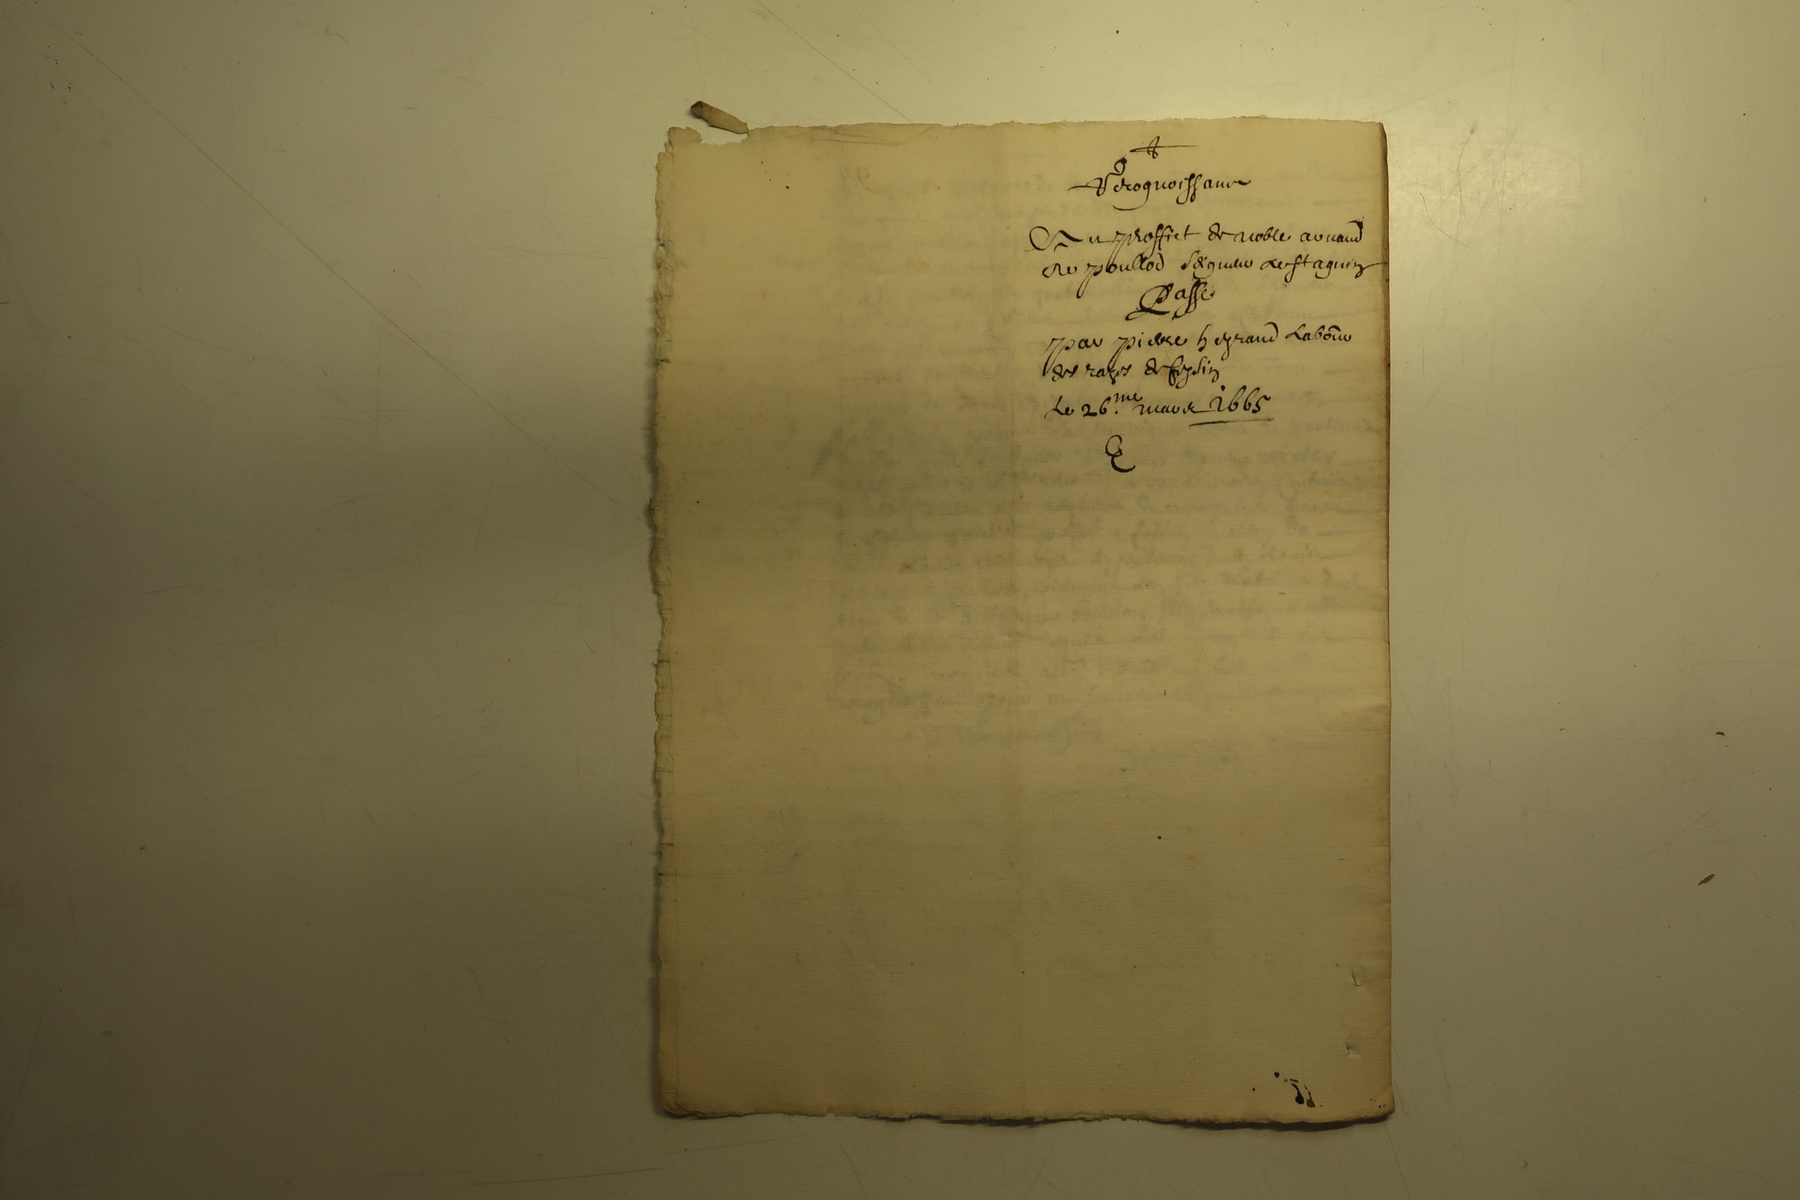 Recognoissance
Au proffict de noble arnaud
de poullod seigneur
Passé
par pierre heyraud Labour
des razes de
Le 26.me mars 1665